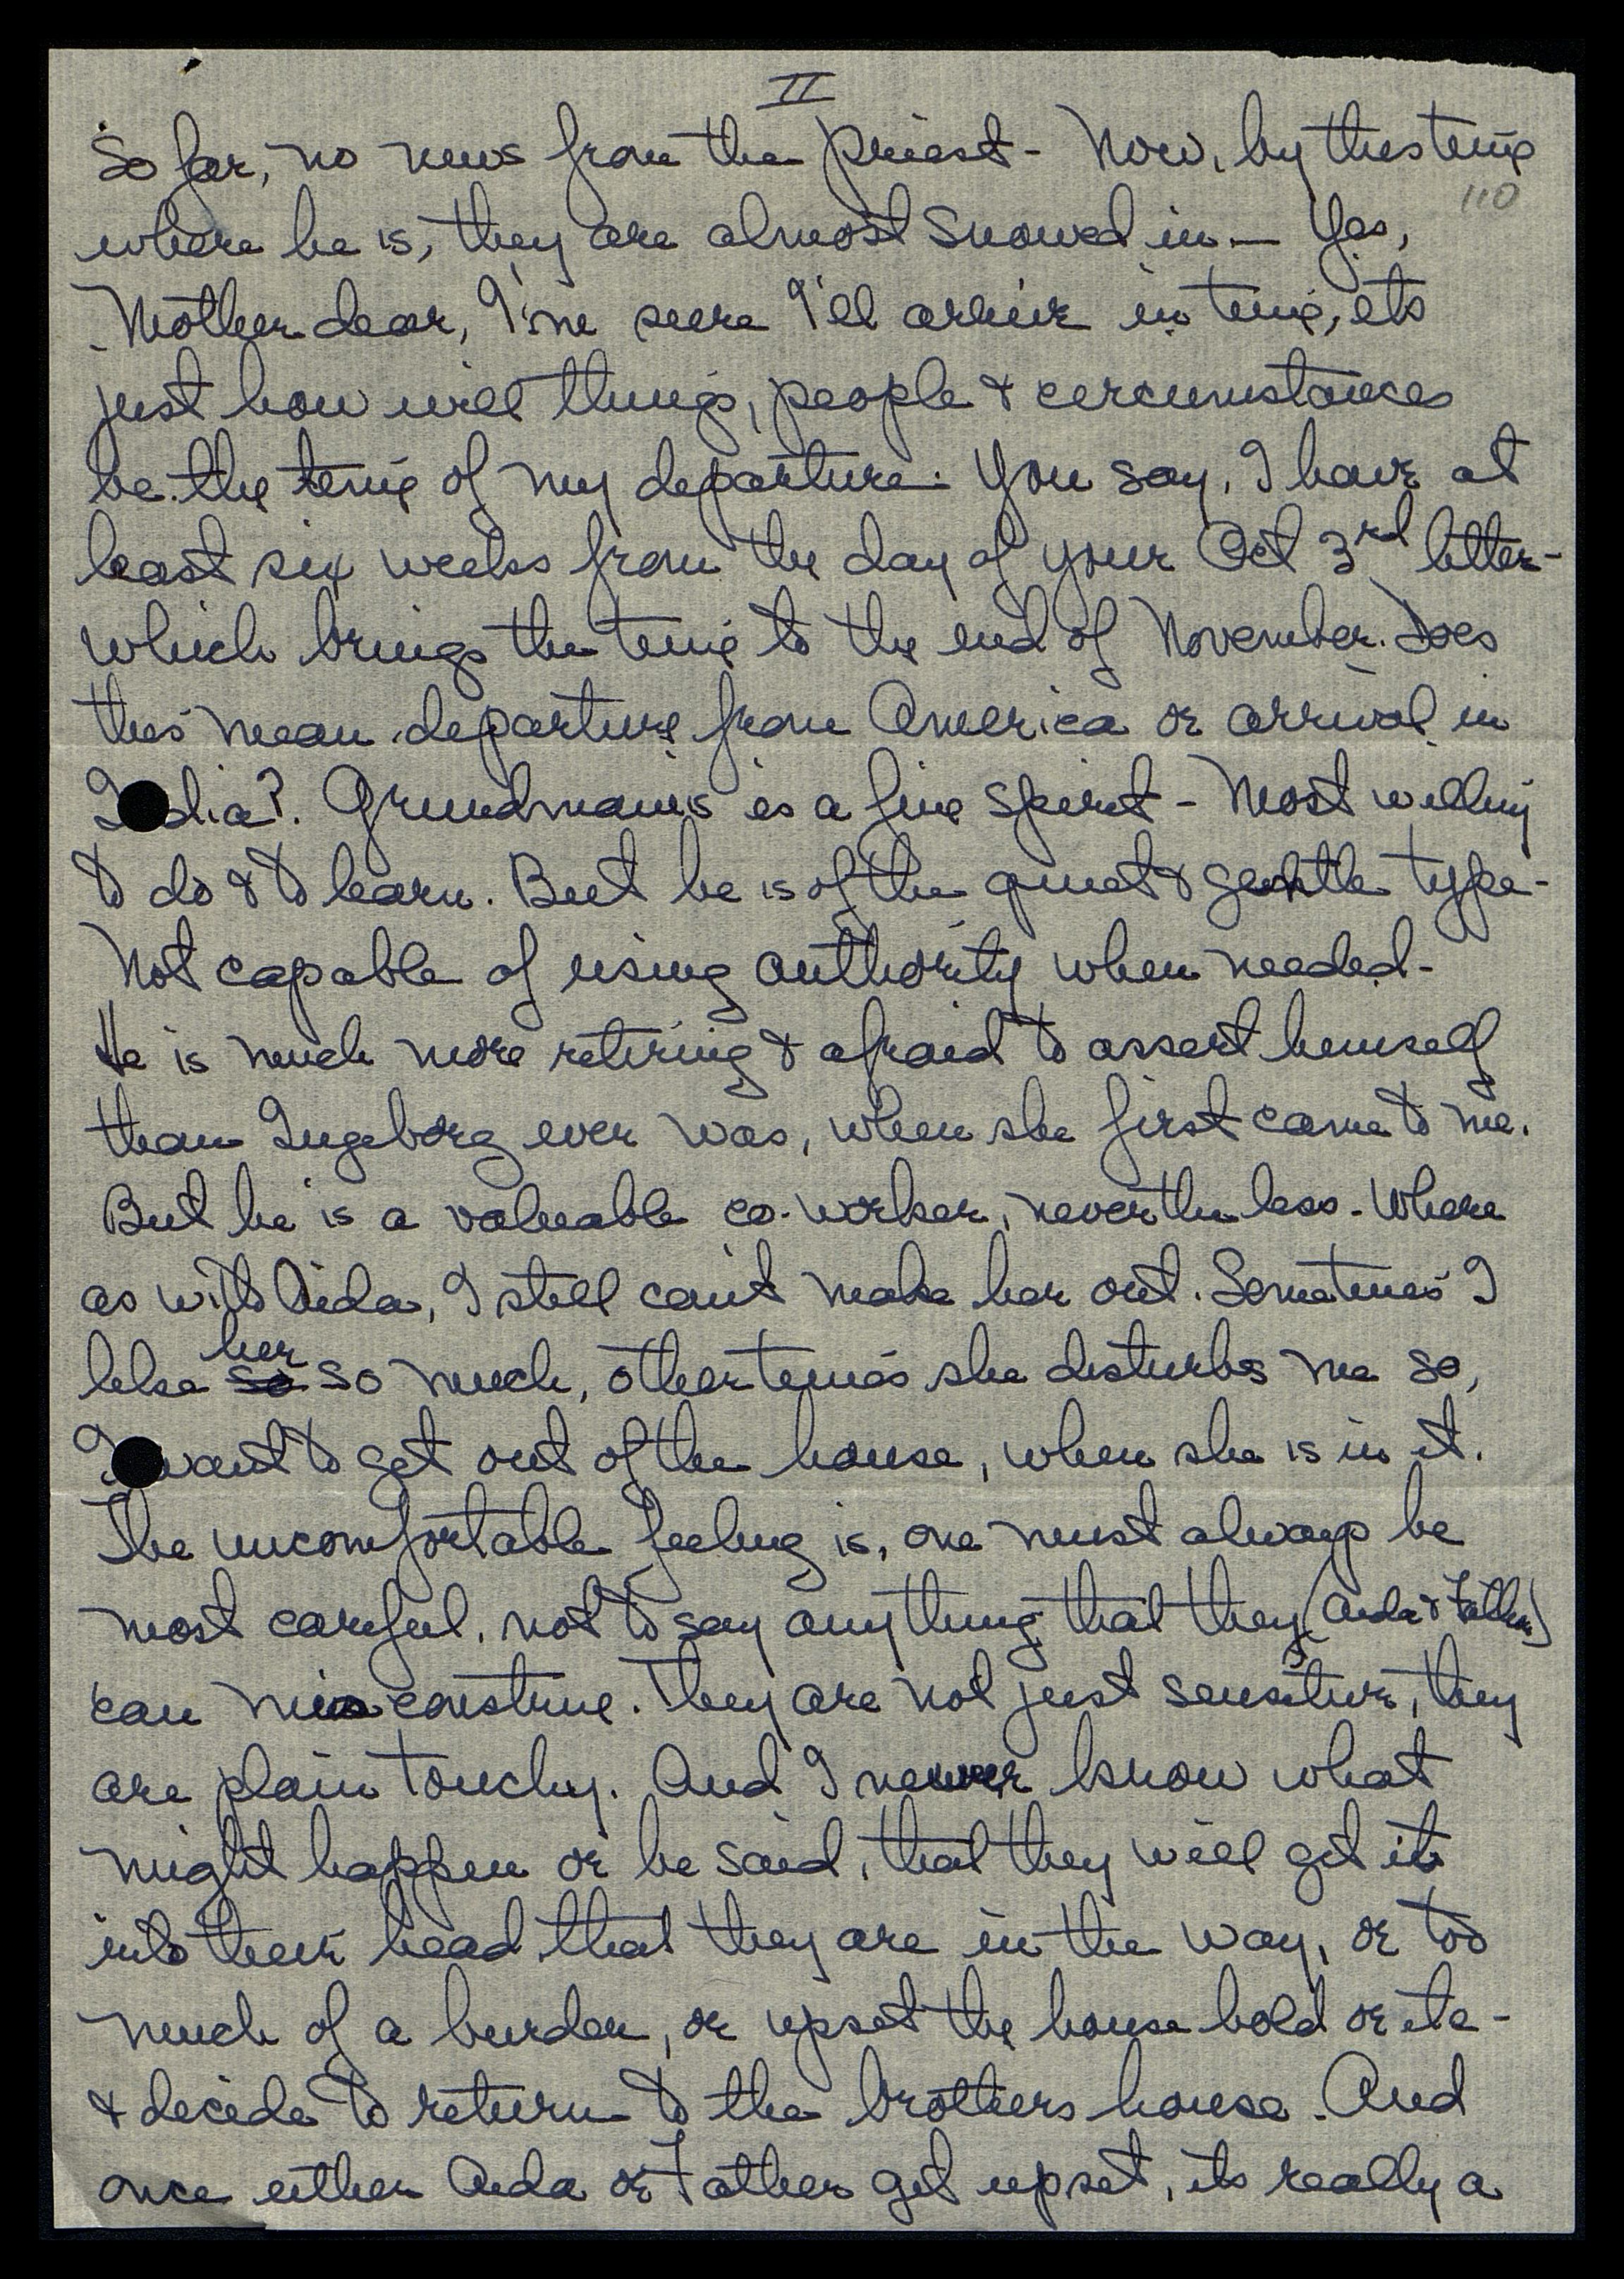 II
So far, no news from the Priest - Now, by this time
110
where he is, they are almost snowed in. — Yes,
Mother dear, I'm sure I'll arrive in time, its
just how will things, people & circumstances
be the time of my departure. You say, I have at
least six weeks from the day of your Oct 3rd letter -
which brings the time to the end of November. Does
this mean departure from America or arrival in
India?. Grundmanis is a fine spirit - Most willing
to do & to learn. But he is of the quiet & gentle type -
Not capable of using authority when needed -
He is much more retiring & afraid to assert himself
than Ingeborg ever was, when she first came to me.
But he is a valuable co-worker, never the less. Where
as with Aida, I still can't make her out. Sometimes I
her
like so so much, other times she disturbs me so,
I want to get out of the house, when she is in it.
The uncomfortable feeling is, one must always be
most careful, not to say anything that they (Aida & Father)
can misconstrue. They are not just sensitive, they
are plain touchy. And I never know what
might happen or be said, that they will get it
into their head that they are in the way, or too
much of a burden, or upset the house hold or etc -
& decide to return to the brothers house. And
once either Aida or Father get upset, its really a